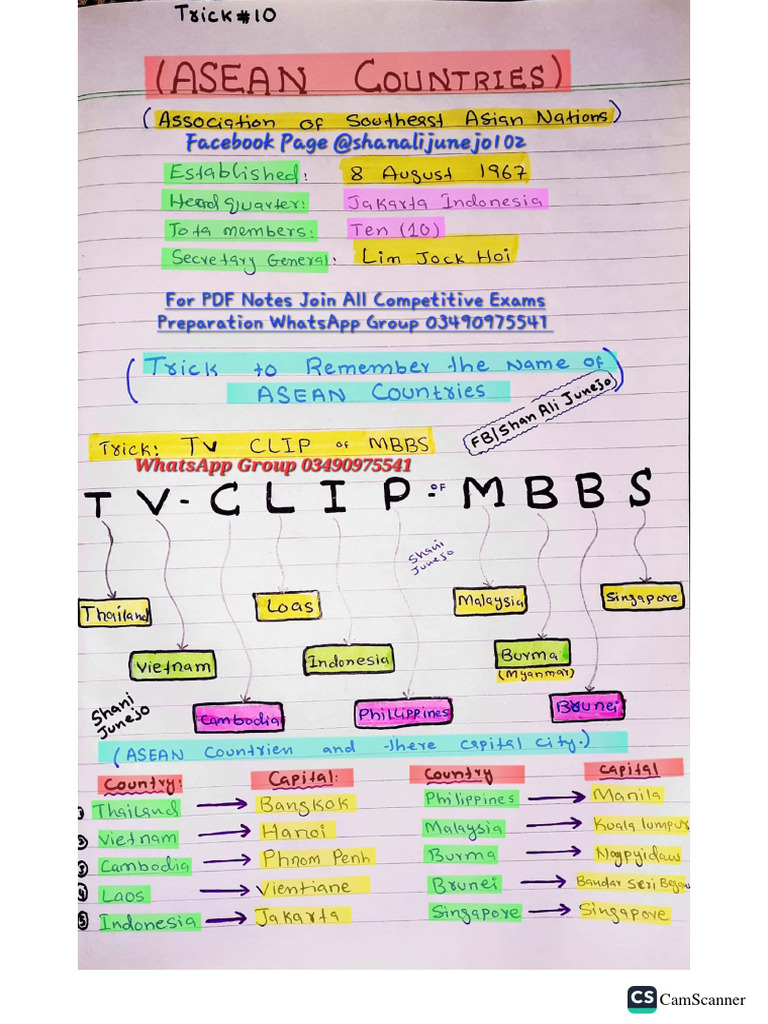 Trick#10
(ASEAN COUNTRIES)
(Association of Southeast Asian Nations)
Facebook Page @shanalijunejo102
Established: 8 August 1967
Headquarter: Jakarta Indonesia
Tota members: Ten (10)
Secretary General: Lim Jock Hoi
For PDF Notes Join All Competitive Exams
Preparation WhatsApp Group 03490975541
(Trick to Remember the Name of)
ASEAN Countries
FB/Shan Ali Junejo
Trick: TV CLIP of MBBS
WhatsApp Group 03490975541
TV-CLIP-OF MBBS
Shani
Junejo
Thailand Loas Malaysia Singapore
Vietnam Indonesia Burma
(Myanmar)
Shani
Junejo
Cambodia Phillippines Brunei
(ASEAN Countrien and there capital city.)
Country: Capital: Country Capital
1 Thailand → Bangkok Philippines → Manila
2 Vietnam → Hanoi Malaysia → Kuala lumpur
3 Cambodia → Phnom Penh Burma → Naypyidaw
4 Laos → Vientiane Brunei → Bandar Seri Begaw
5 Indonesia → Jakarta Singapore → Singapore
CS CamScanner